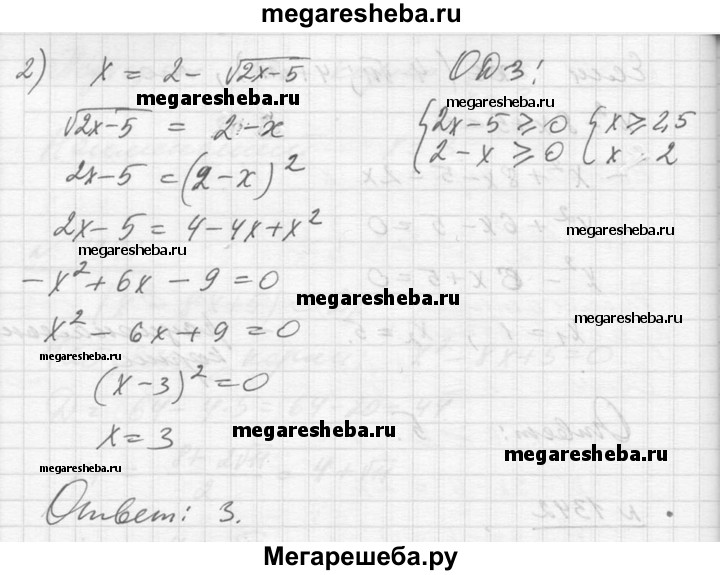 megaresheba.ru
2) x = 2 - √(2x-5)
ОДЗ:
megaresheba.ru
megaresheba.ru
√(2x-5) = 2 - x
{2x-5 ≥ 0 {x ≥ 2,5
{2 - x ≥ 0 {x 2
2x-5 = (2-x)²
2x-5 = 4-4x+x²
megaresheba.ru
megaresheba.ru
-x²+6x-9=0
megaresheba.ru
x²-6x+9=0
megaresheba.ru
(x-3)²=0
x=3
megaresheba.ru
megaresheba.ru
megaresheba.ru
Ответ: 3.
Мегарешеба.ру